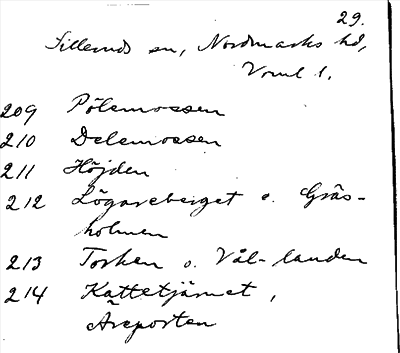 29.
Silleruds sn, Nordmarks hd,
Vrml l.
209 Pölsmossen
210 Delemossen
211 Höjden
212 Lögareberget o. Gräs-
holmen
213 Torken o. Vål-landen
214 Kattetjärnet,
Åreporten